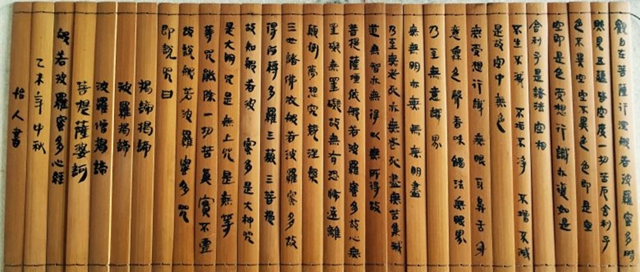 觀自在菩薩行深般若波羅蜜多時
照見五蘊皆空度一切苦厄舍利子
色不異空空不異色色即是空
空即是色受想行識亦復如是
舍利子是諸法空相
不生不滅 不垢不淨 不增不減
是故空中無色
無受想行識 無眼耳鼻舌身
意無色聲香味觸法無眼界
乃至無意識界
無無明亦無無明盡
乃至無老死亦無老死盡無苦集滅
道無智亦無得以無所得故
菩提薩埵依般若波羅蜜多故心無
罣礙無罣礙故無有恐怖遠離
顛倒夢想究竟涅槃
三世諸佛依般若波羅蜜多故
得阿耨多羅三藐三菩提
故知般若波羅蜜多是大神咒
是大明咒是無上咒是無等
等咒能除一切苦真實不虛
故說般若波羅蜜多咒
即說咒曰
揭諦揭諦
波羅揭諦
波羅僧揭諦
菩提薩婆訶
般若波羅蜜多心經
乙未年中秋
怡人書